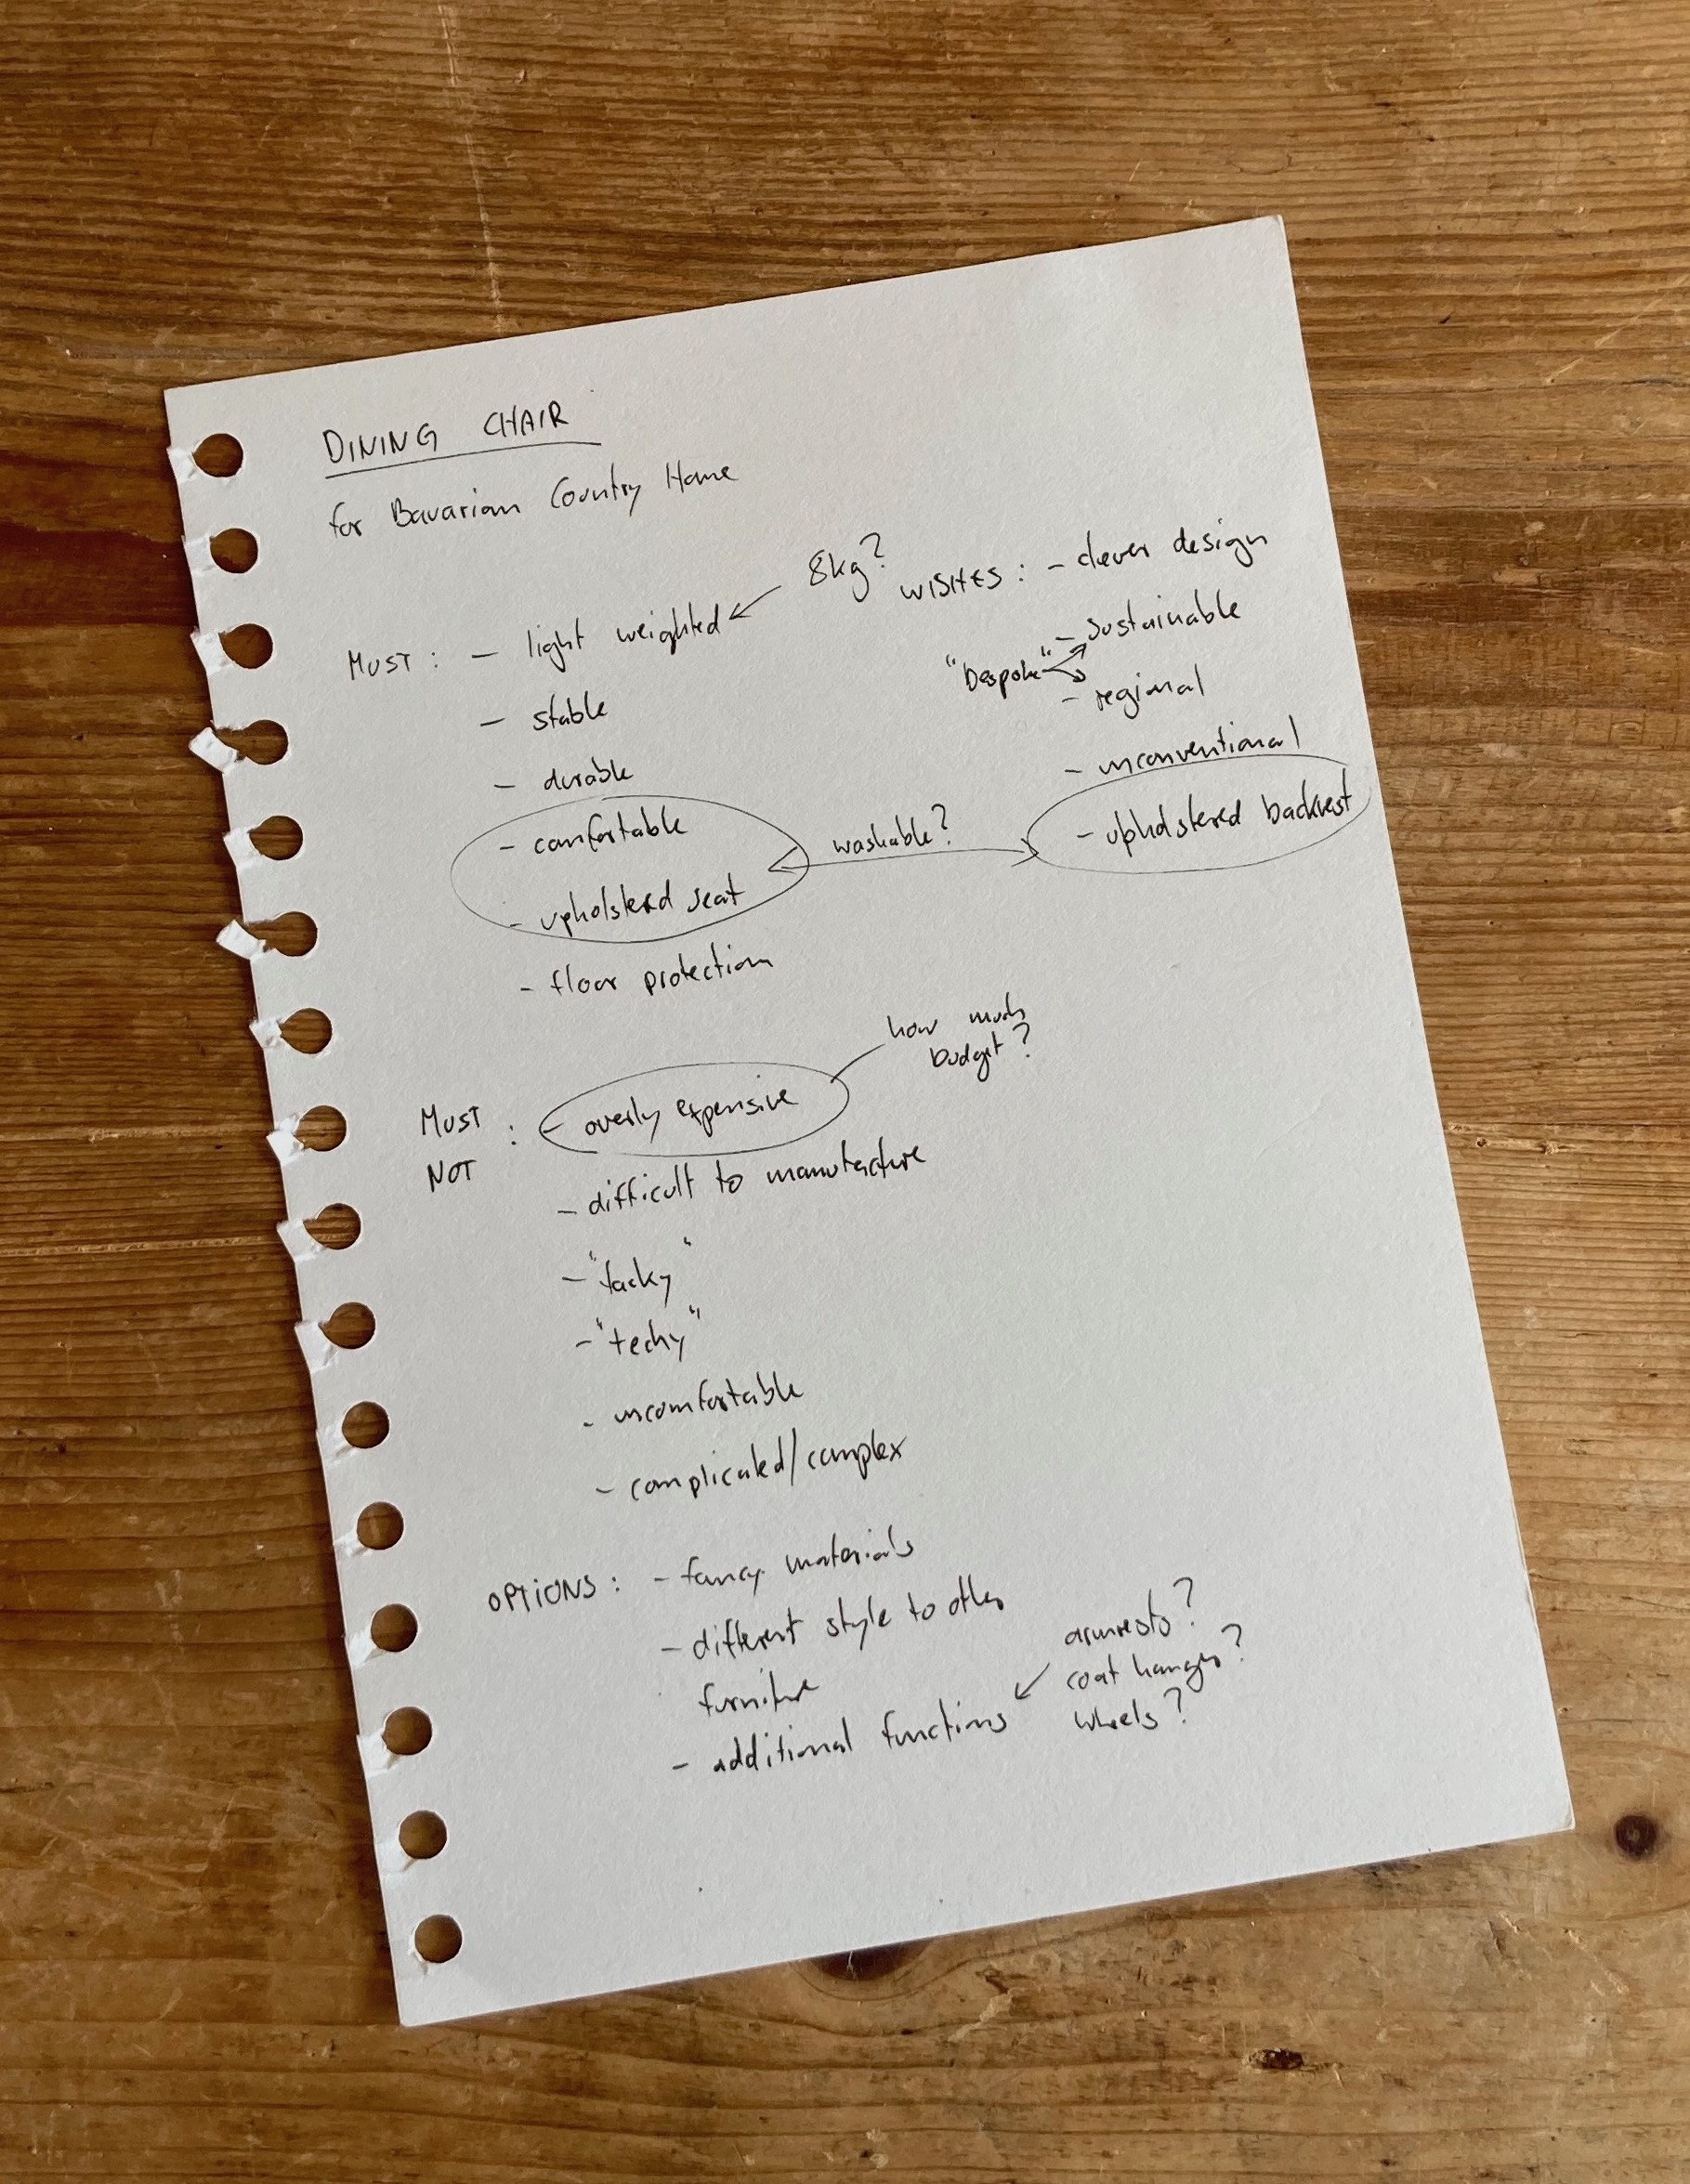 DINING CHAIR
for Bavarian Country Home
8kg?
MUST : - light weighted
- stable
- durable
- comfortable
- upholsterd seat
- floor protection
washable?
WISHES : - clever design
- sustainable
"bespoke"
- regional
- unconventional
- upholstered backrest
how much
budget?
MUST
NOT : - overly expensive
- difficult to manufacture
- "tacky"
- "techy"
- uncomfortable
- complicated/complex
OPTIONS : - fancy materials
- different style to other
furniture
- additional functions
armrests?
coat hanger?
wheels?